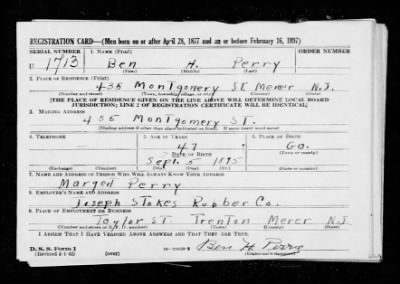 REGISTRATION CARD—(Men born on or after April 28, 1877 and on or before February 16, 1897)
SERIAL NUMBER 1. NAME (Print) ORDER NUMBER
U 1713 Ben H. Perry
(First) (Middle) (Last)
2. PLACE OF RESIDENCE (Print)
435 Montgomery ST. Mercer N.J.
(Number and street) (Town, township, village, or city) (County) (State)
[THE PLACE OF RESIDENCE GIVEN ON THE LINE ABOVE WILL DETERMINE LOCAL BOARD
JURISDICTION; LINE 2 OF REGISTRATION CERTIFICATE WILL BE IDENTICAL]
3. MAILING ADDRESS
435 Montgomery ST.
[Mailing address if other than place indicated on line 2. If same insert word same]
4. TELEPHONE 5. AGE IN YEARS 6. PLACE OF BIRTH
47
DATE OF BIRTH Ga.
Sept. 5 1895
(Exchange) (Number) (Mo.) (Day) (Yr.) (State or country)
7. NAME AND ADDRESS OF PERSON WHO WILL ALWAYS KNOW YOUR ADDRESS
Perry
8. EMPLOYER'S NAME AND ADDRESS
Joseph Stokes Rubber Co.
9. PLACE OF EMPLOYMENT OR BUSINESS
Taylor ST. Trenton Mercer N.J.
(Number and street or R. F. D. number) (Town) (County) (State)
I AFFIRM THAT I HAVE VERIFIED ABOVE ANSWERS AND THAT THEY ARE TRUE.
D. S. S. Form 1
(Revised 4-1-42) (over) Ben H Perry
(Registrant's signature)